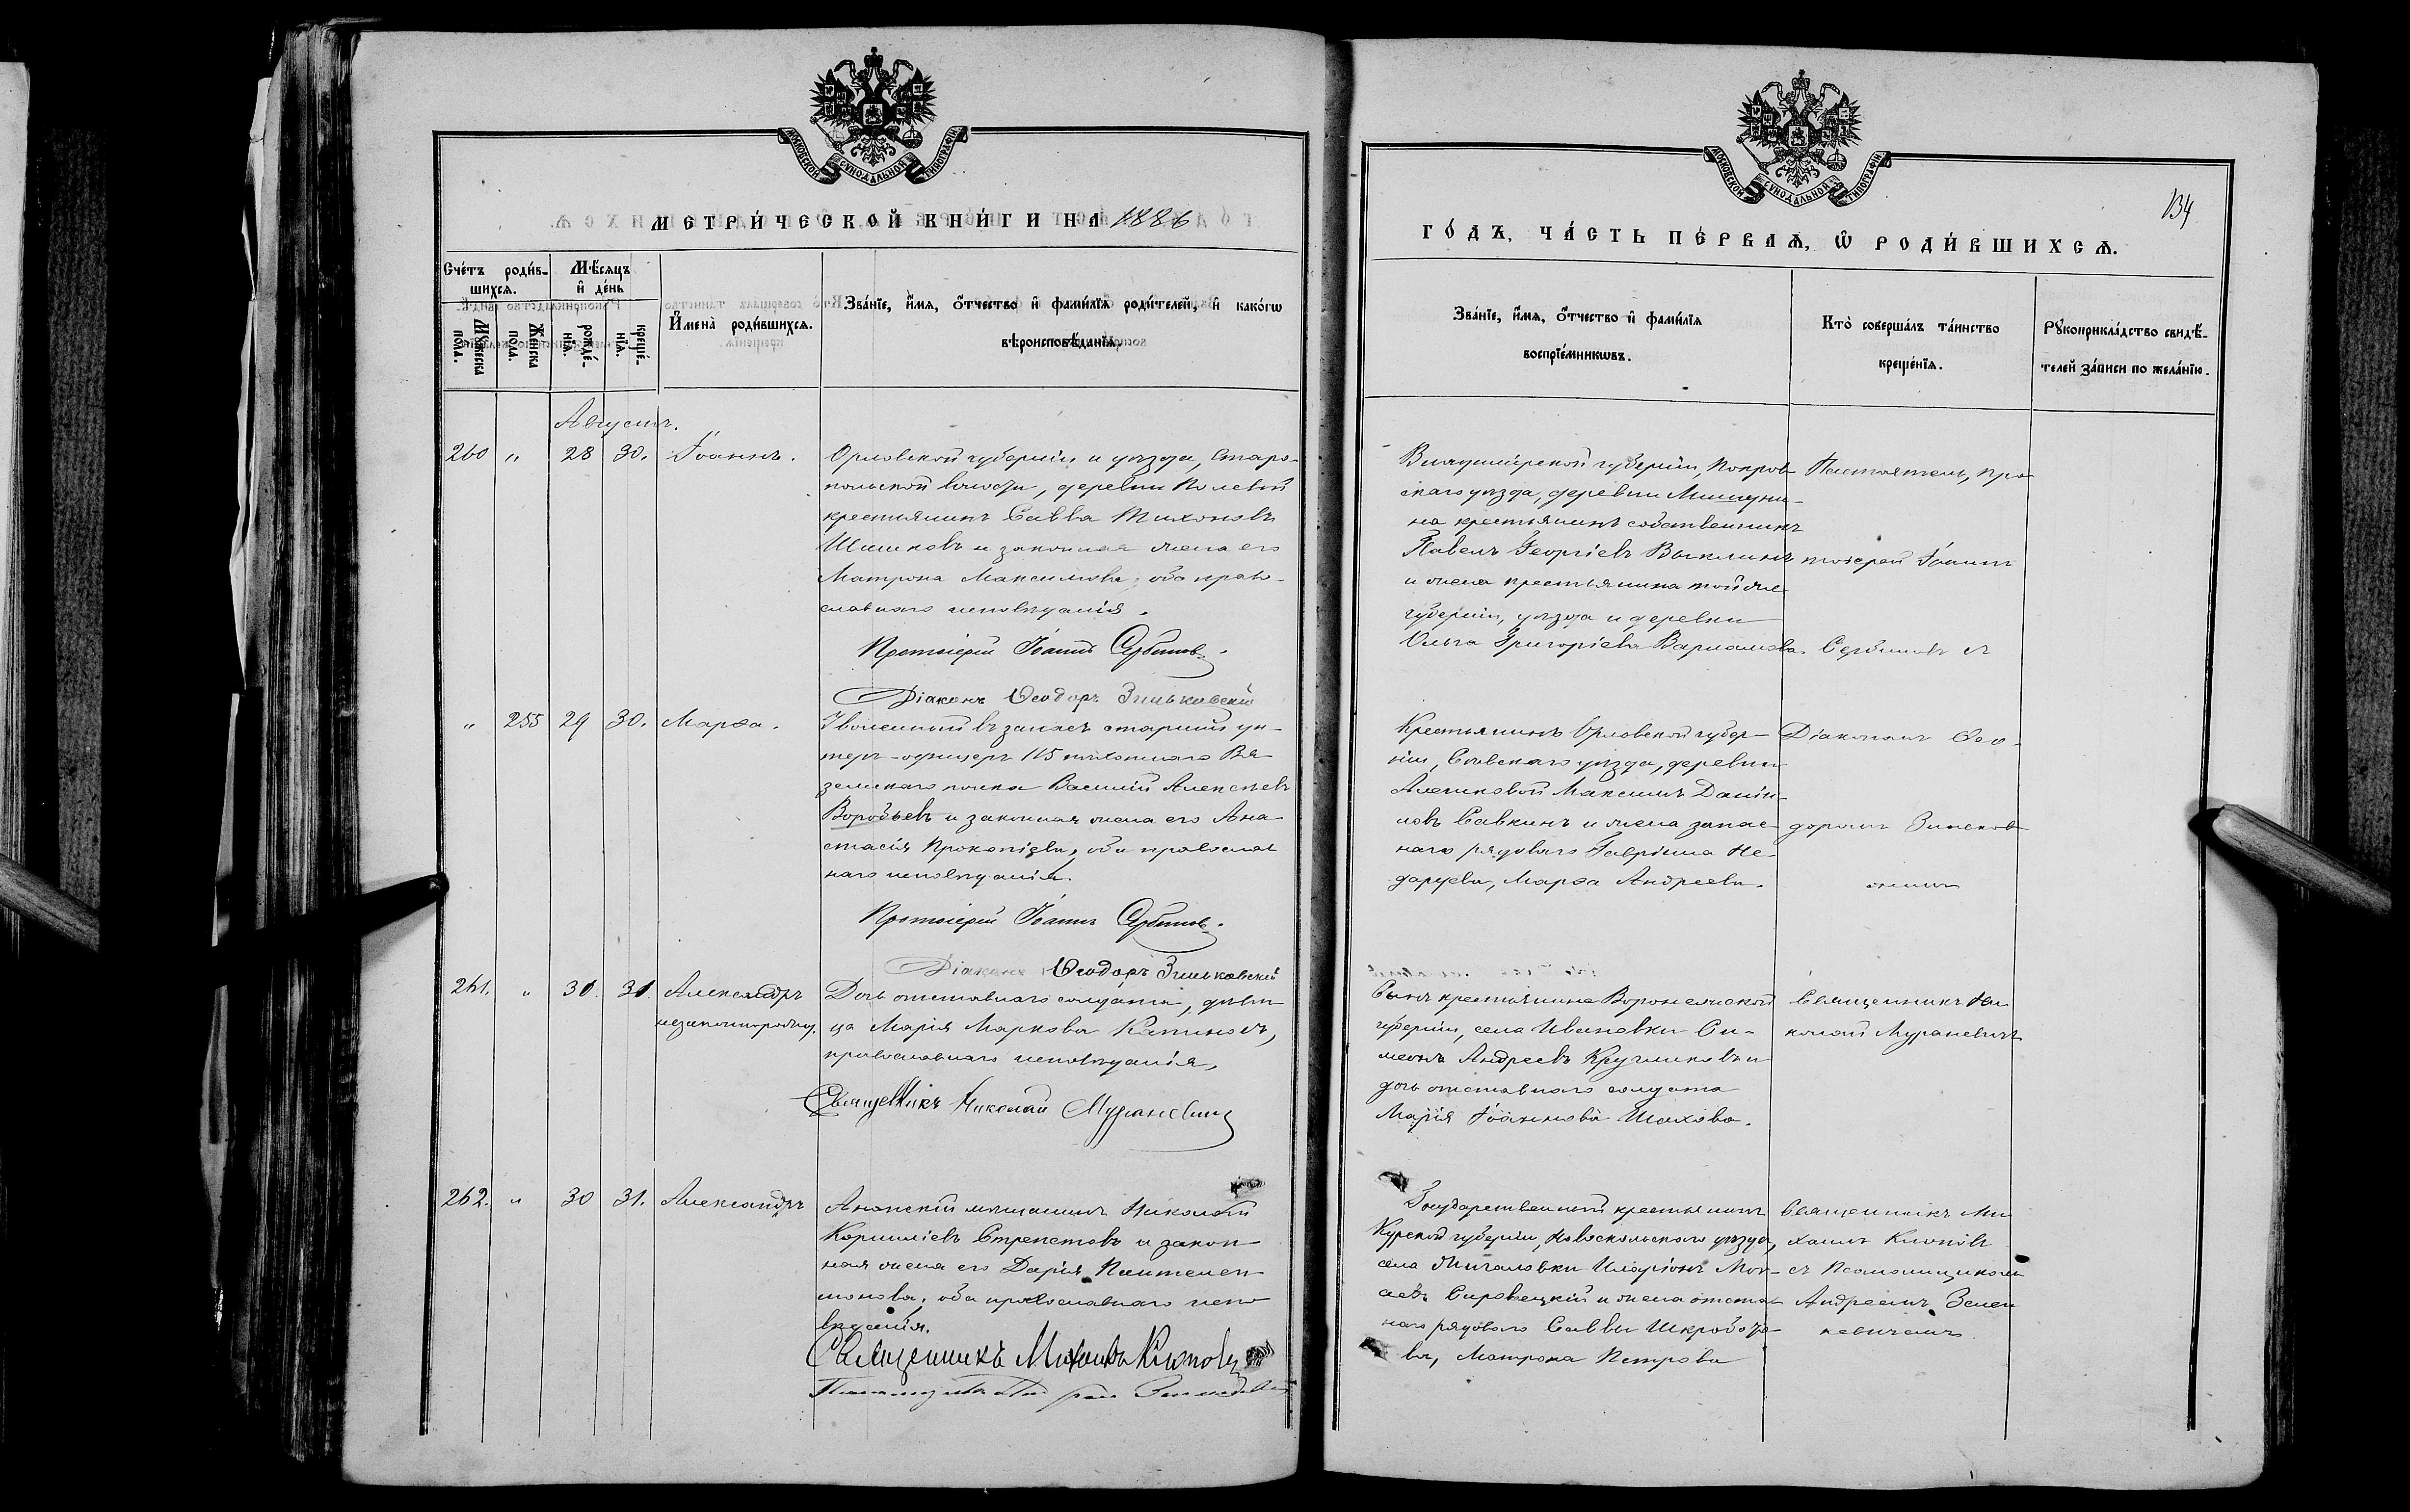 МОСКОВСКОЙ СѴНОДАЛЬНОЙ ТИПОГРАФІИ
МЕТРИ́ЧЕСКОЙ КНИ́ГИ НА 1886
Сче́тъ роди́в-
шихсѧ.
Мѣ́сѧцъ
и҆ де́нь
Мꙋжеска
пола.
Женска
пола.
рожде́-
нїѧ.
креще́-
нїѧ.
И҆мена̀ роди́вшихсѧ.
Зва́нїе, и҆́мѧ, ѻ҆́тчество и҆ фами́лїѧ роди́телей, и҆ како́гѡ
вѣроисповѣ́данїѧ.
Августъ.
260 „ 28 30. Іоаннъ.
Орловской губерніи и уѣзда, Старо-
польской волости, деревни Полевой
крестьянинъ Савва Тихоновъ
Шишковъ и законная жена его
Матрона Максимова, оба право-
славнаго исповѣданія.
Протоіерей Іоаннъ Сербиновъ.
Діаконъ Ѳеодоръ Зиньковскій
„ 255 29 30. Марѳа.
Уволенный въ запасъ старшій ун-
теръ-офицеръ 115 пѣхотнаго Вя-
земскаго полка Василій Алексѣевъ
Воробьевъ и законная жена его Ана-
стасія Прокопіева, оба православ
наго исповѣданія.
Протоіерей Іоаннъ Сербиновъ.
Діаконъ Ѳеодоръ Зиньковскій
261. „ 30. 31. Александръ
незаконнорожд.
Дочь отставнаго солдата, дѣви-
ца Марія Маркова
православнаго исповѣданія,
Священникъ Николай Мураневичъ
262. „ 30 31. Александръ
Анапскій мѣщанинъ Николай
Корниліевъ Стрепетовъ и закон-
ная жена его Дарія Пантелеи-
монова, оба православнаго испо
вѣданія.
Священникъ Михаилъ Клоповъ
МОСКОВСКОЙ СѴНОДАЛЬНОЙ ТИПОГРАФІИ
134
ГО́ДЪ, ЧА́СТЬ ПЕ́РВАѦ, Ѡ҆ РОДИ́ВШИХСѦ.
Зва́нїе, и҆́мѧ, ѻ҆́тчество и҆ фами́лїѧ
воспрїе́мникѡвъ.
Кто̀ соверша́лъ та́инство
креще́нїѧ.
Рꙋкоприкла́дство свидѣ́-
телей за́писи по жела́нїю.
Владимірской губерніи, Покров-
скаго уѣзда, деревни
на крестьянинъ собственникъ
Павелъ Георгіевъ
и жена крестьянина той же
губерніи, уѣзда и деревни
Ольга Григоріева Варламова.
Настоятель, про
тоіерей Іоаннъ
Сербиновъ съ
Крестьянинъ Орловской губер-
ніи, Сѣвскаго уѣзда, деревни
Алешковой Максимъ Даніи-
ловъ Савкинъ и жена запас-
наго рядоваго Гавріила Не-
Марѳа Андреева.
Діакономъ Ѳео-
доромъ Зиньков-
скимъ
Сынъ крестьянина Воронежской
губерніи, села Ивановки Си-
меонъ Андреевъ Кругликовъ и
дочь отставнаго солдата
Марія Іоаннова Шахова.
Священникъ Ни
колай Мураневичъ
Государственный крестьянинъ
Курской губерніи, Новоскольскаго уѣзда,
села Жигаловки Иларіонъ Мои-
сеевъ Сировецкій и жена отстав
наго рядоваго Саввы
ва, Матрона Петрова
Священникъ Ми
хаилъ Клоповъ
съ Псаломщикомъ
Андреемъ Зелен
кевичемъ